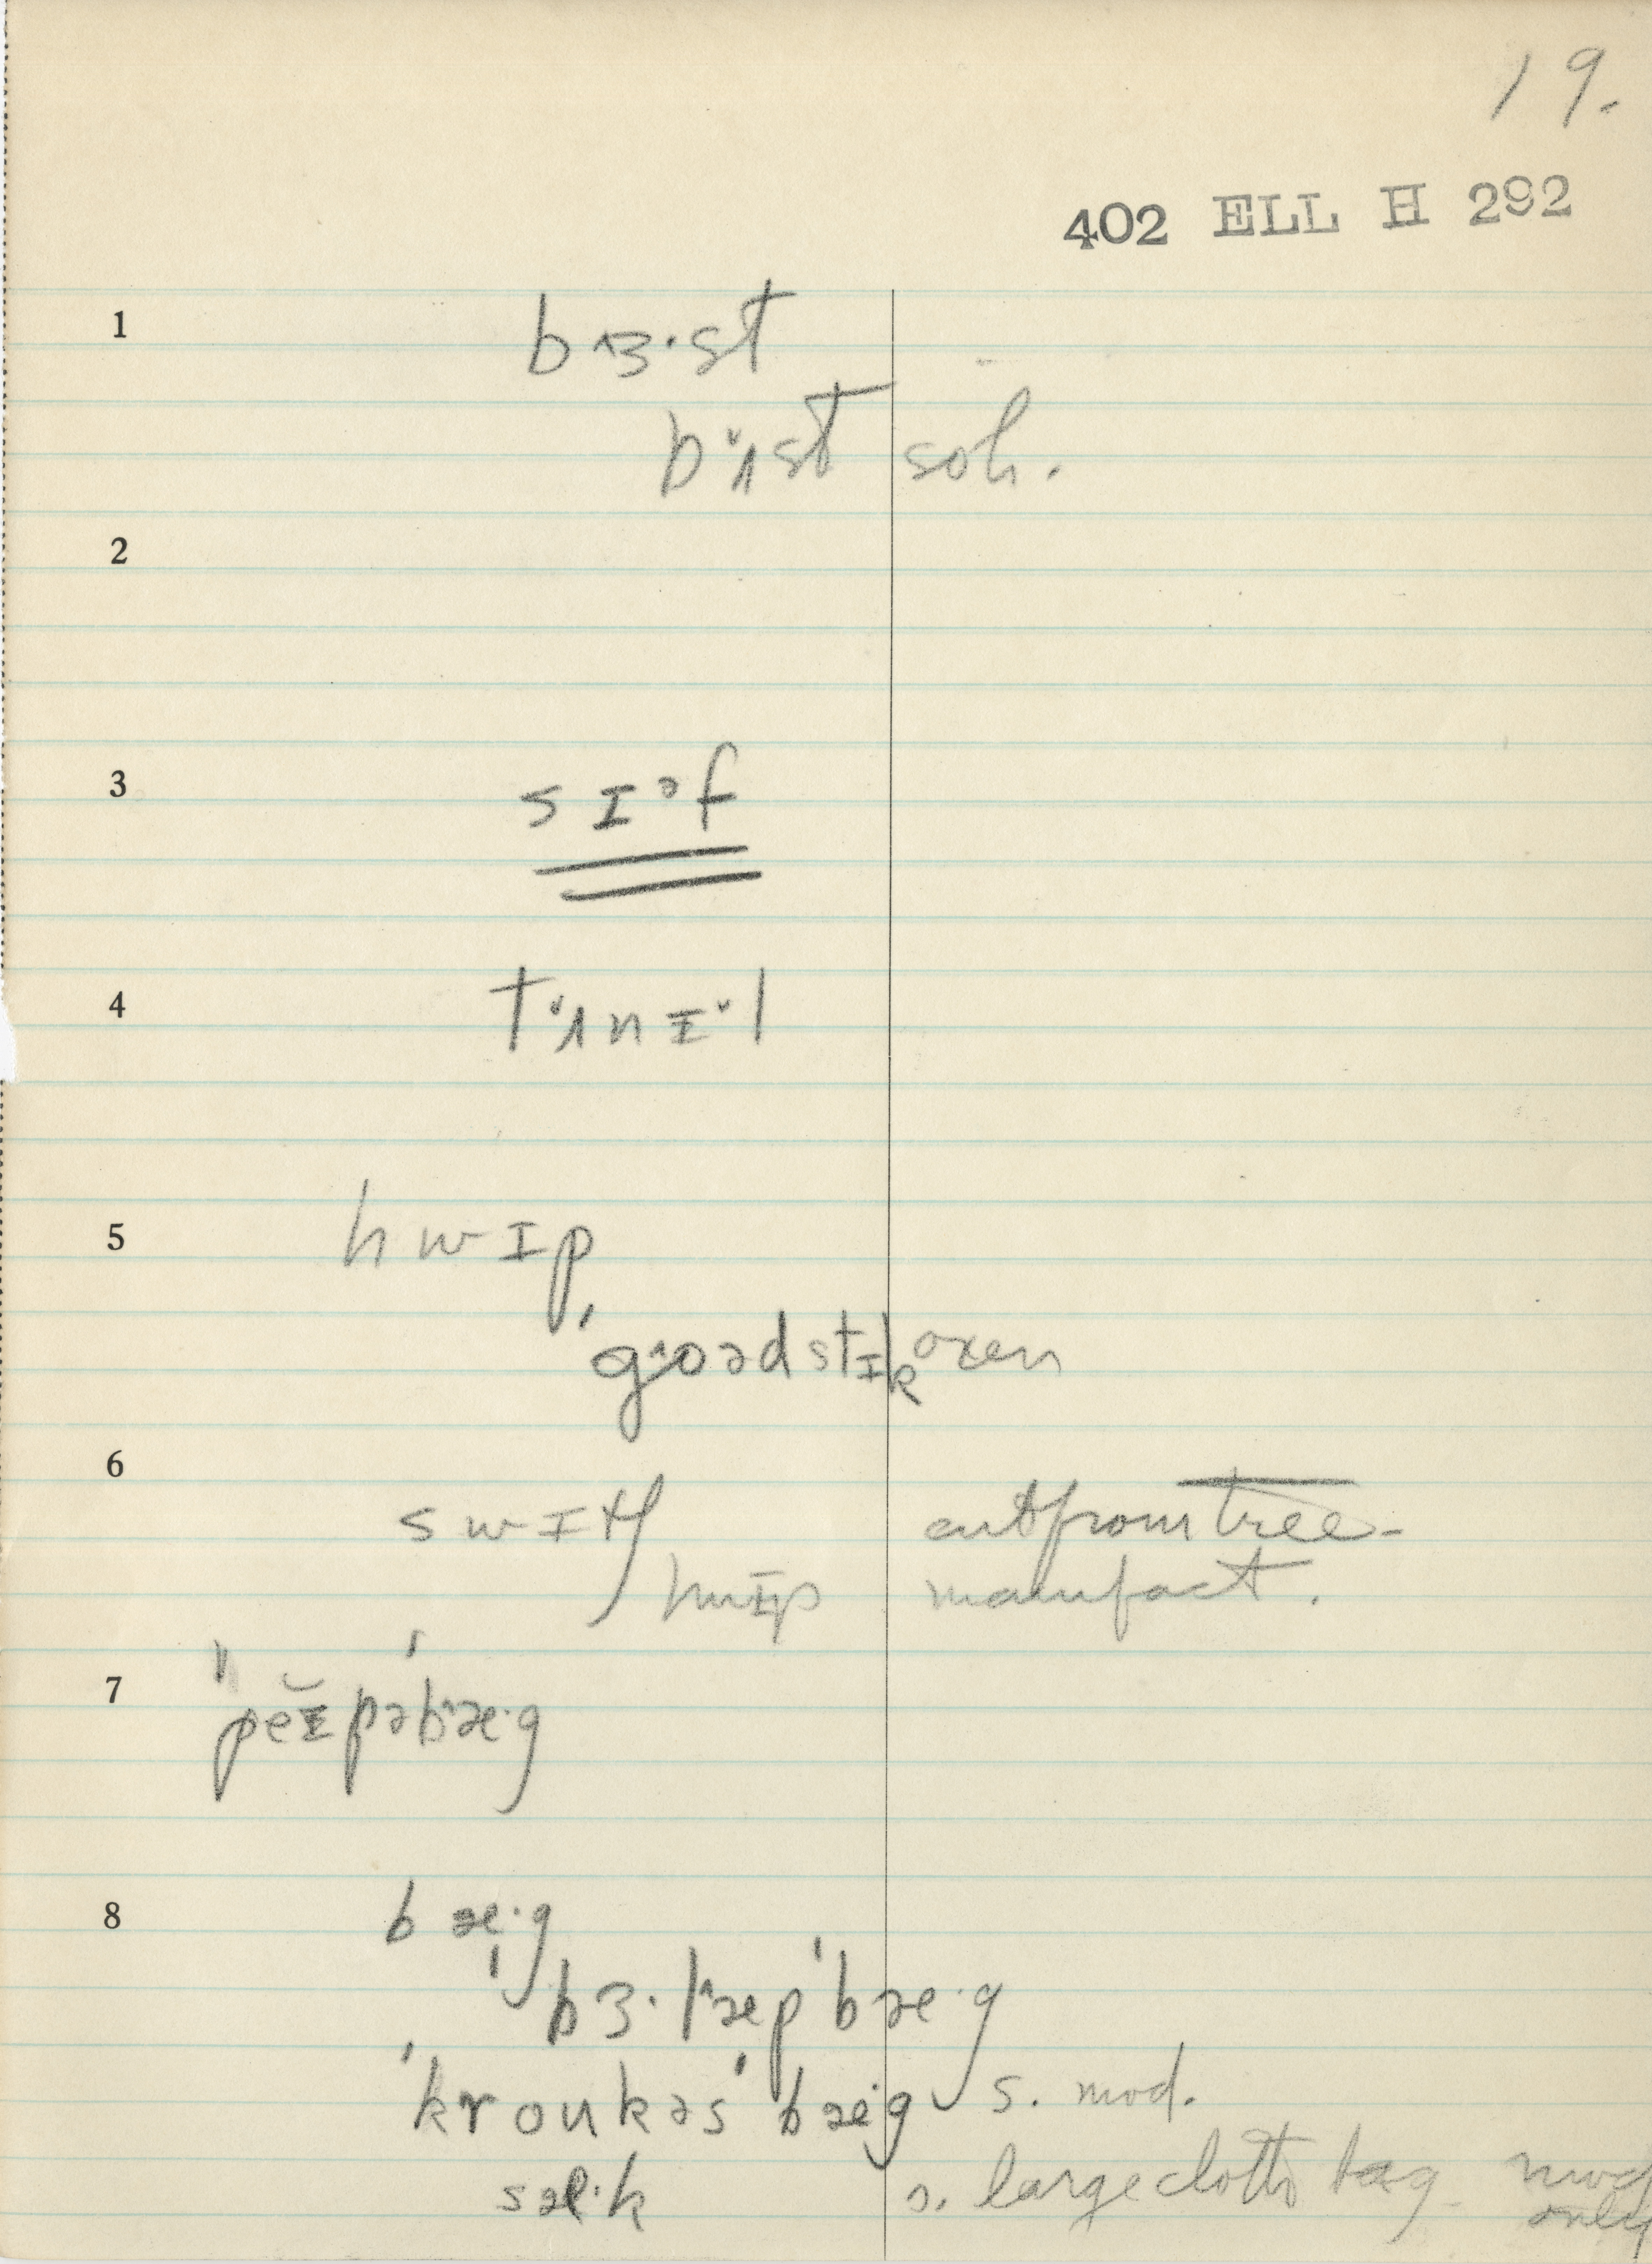 19.
402 ELL H 292
1 b ɜ·st
bʌst soh.
2
3 s ɪ ᵊ f
4 tʌn ɪ l
5 h w ɪ p
ˈgoəd stɪk oxen
6
s w ɪ tʃ cut from tree-
hwɪp manufact.
7 ˈˈpeɪpəˈbæ·g
8 b æ·g
ˈbɜ·lˈæpˈbæ·g
ˈkroukəsˈbæ·g s. mod.
sæ·k s. large cloth bag mod
only